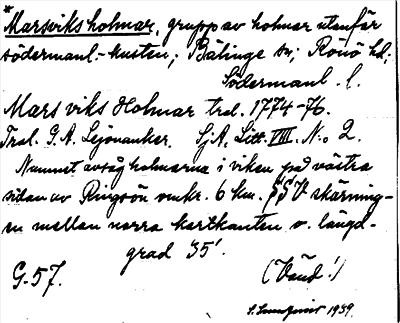 *
Marsviksholmar, grupp av holmar utenför
södermanl.-kusten; Bälinge sn; Rönö hd;
Södermanl. l.
Marsviks Holmar trol. 1774-76.
Trol. G. A. Lejonanker. SjA, Litt. VIII, No 2.
Namnet avsåg holmarna i viken på västra
sidan av Ringsön omkr. 6 km. SSV skärning-
en mellan norra kartkanten o. längd-
grad 35'.
G.57. (Vänd!)
1939.